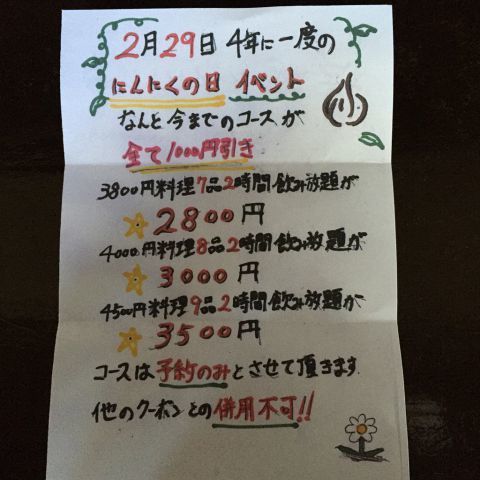 2月29日 4年に一度の
にんにくの日 イベント
なんと今までのコースが
全て1000円引き
3800円料理7品2時間飲み放題が
2800円
4000円料理8品2時間飲み放題が
3000円
4500円料理9品2時間飲み放題が
3500円
コースは予約のみとさせて頂きます
他のクーポンとの併用不可!!